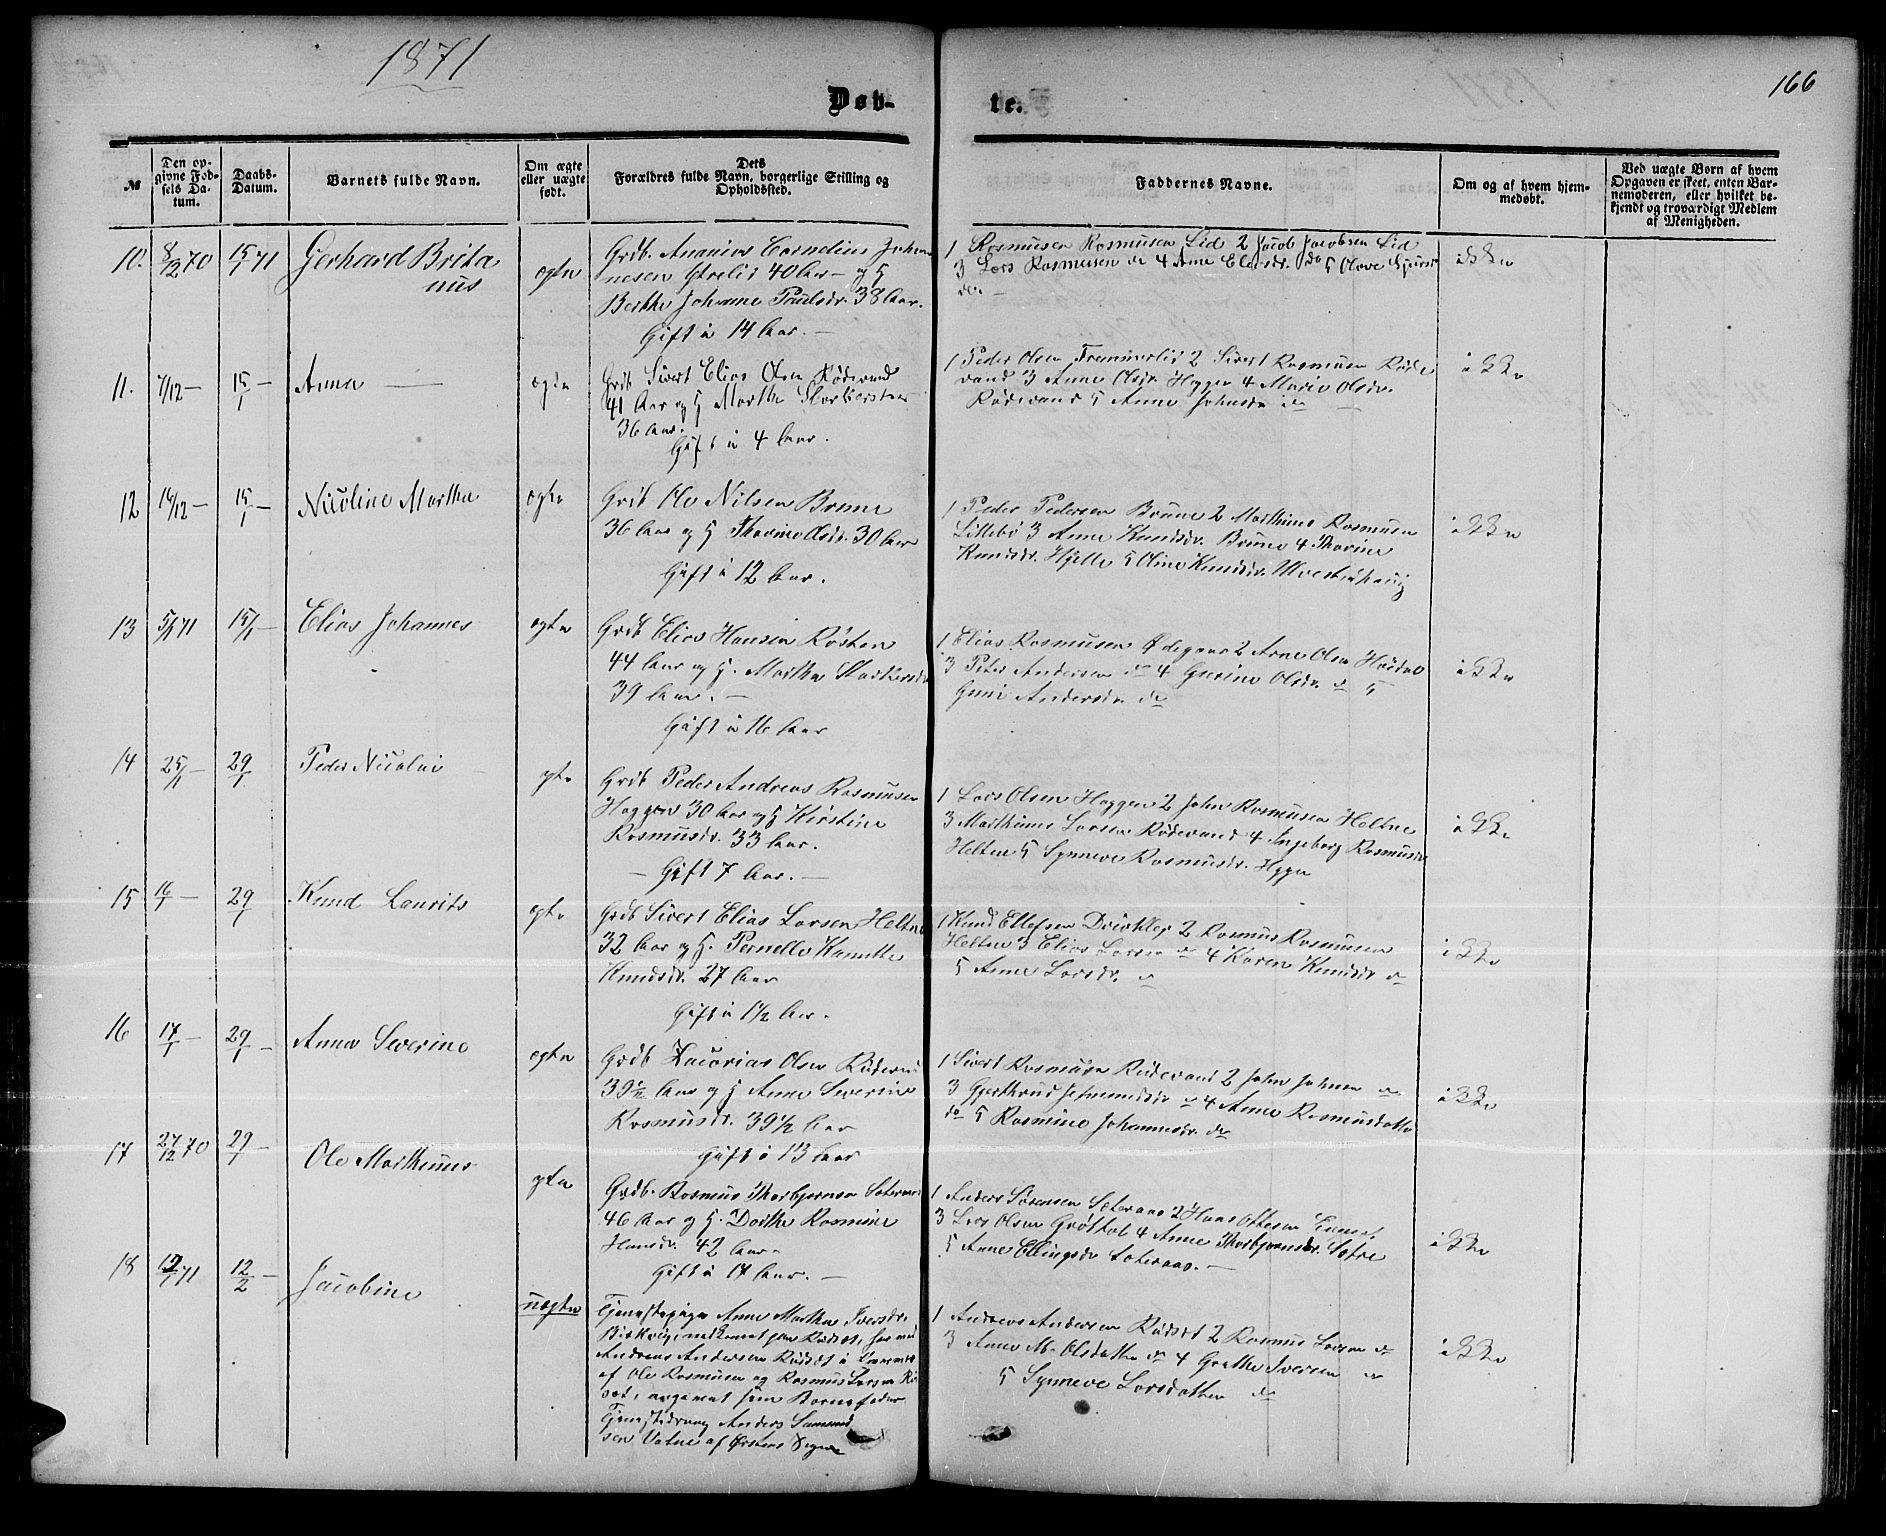 1871
166
Døb-
te.
№
Den op-
givne Fød-
sels Da-
tum.
Daabs-
Datum.
Barnets fulde Navn.
Om ægte
eller uægte
født.
Dets
Forældres fulde Navn, borgerlige Stilling og
Opholdssted.
Faddernes Navne.
Om og af hvem hjem-
medøbt.
Ved uægte Børn af hvem
Opgaven er skeet, enten Bar-
nemoderen, eller hvilket be-
kjendt og troværdigt Medlem
af Menigheden.
10. 8/12 70 15/1 71 Gerhard Brita
nus
ægte
Grdb. Ananias Cornelius Johan
nesen 40 Aar og H
Berthe Johanne Paulsdr. 38 Aar.
Gift i 14 Aar.
1 Rasmusen Rasmusen Lid 2 Jacob Jacobsen Lid
3 Lars Rasmusen do 4 Ane do 5 Olave
do
ikke
11. 7/12 - 15/1 - Anna
ægte
Grdb Sivert Elias Olsen Rødevand
41 Aar og H Marthe
36 Aar.
Gift i 4 Aar.
1 Peder Olsen Fremmerlid 2 Sivert Rasmusen Røde
vand 3 Anne Olsdr. Hyggen 4 Marie Olsdr.
Rødevand 5 Anne do
ikke
12 16/12 - 15/1 - Nicoline Martha
ægte
Grdb Ole Nilsen Brune
36 Aar og H Thorine Olsdr. 30 Aar
Gift i 12 Aar.
1 Peder Pedersen Brune 2 Mathias Rasmusen
Littebø 3 Anne Knudsdr. Brune 4 Thorine
Knudsdr. Hjelle 5 Oline Knudsdr.
ikke
13 5/1 71 15/1 - Elias Johannes
ægte
Grdb Elias Hansen Røsten
44 Aar og H. Martha
39 Aar.
Gift i 16 Aar
1 Elias Rasmusen Ødegaar 2 Arne Olsen
3 Peter Andersen do 4 Gurine Olsdr. do 5
Guri Andersdr. do
ikke
14 25/1 - 29/1 Peder Nicolai
ægte
Grdb Peder Andreas Rasmusen
Haggen 30 Aar og H Kirstine
Rasmusdr. 33 Aar.
Gift 7 Aar.
1 Lars Olsen Haggen 2 John Rasmusen Heltne
3 Mathias Larsen Rødevand 4 Ingeborg Rasmusdr
Heltne 5 Synneve Rasmusdr. Hyggen
ikke
15 16/1 - 29/1 Knud Laurits
ægte
Grdb Sivert Elias Larsen Heltne
32 Aar og H. Pernelle Hanette
Knudsdr. 27 Aar
Gift i 1 1/2 Aar.
1 Knud Ellefsen 2 Rasmus Rasmusen
Heltne 3 Elias Larsen do 4 Karen Knudsdr do
5 Anne Larsdr. do
ikke
16 17/1 - 29/1 - Anna Severine
ægte
Grdb Zacarias Olsen Rødevand
39 1/2 Aar og H Anne Severine
Rasmusdr. 39 1/2 Aar
Gift i 13 Aar
1 Sivert Rasmusen Rødevand 2 John Johnsen do
3 Gjerthrud do 4 Anne Rasmusdatter
do 5 Rasmine Johannesdr. do
ikke
17 27/12 70 29/1 - Ole Mathinus
ægte
Grdb. Rasmus Thorbjørnsen Sæteraas
46 Aar og H. Dorthe Rasmine
Hansdr. 42 Aar.
Gift i 17 Aar.
1 Anders Sørensen Sæteraas 2 Hans Ottesen
3 Lars Olsen Grøttet 4 Anne Thorbjørnsdr. Sætre
5 Anne Ellingsdr Sæteraas.
ikke
18 /1 71 12/2 - Jacobine
uægte
Tjenestepige Anne Martha Iversdr.
Birkevig, nedkomst paa Rødset, hos
Andreas Andersen Rødset i
af Ole Rasmusen og Rasmus Larsen Rø
set, angivet som Barnefader
Tjenestedreng Anders
sen Vatne af Ørstens Sogn
1 Andreas Andersen Rødset 2 Rasmus Larsen do
3 Anne M. Olsdatter do 4 Grethe Iversen do
5 Synneve Larsdatter do
ikke